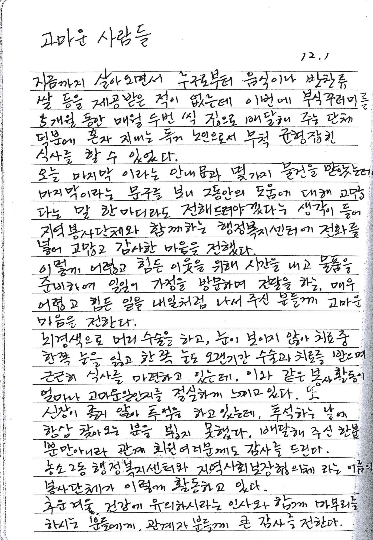 고마운 사람들
12. 1
지금까지 살아오면서 누구로부터 음식이나 반찬류
쌀 등을 제공받은 적이 없는데 이번에 부식꾸러미를
개월 동안 매월 두번 씩 집으로 배달해 주는 단체
덕분에 혼자 지내는 독거 노인으로서 무척 균형잡힌
식사를 할 수 있었다.
오늘 마지막 이라는 안내문과 몇가지 물건을 받았는데
마지막이라는 문구를 보니 그동안의 도움에 대해 고맙
다는 말 한마디라도 전해드려야겠다는 생각이 들어
지역봉사단체와 함께하는 행정복지센터에 전화를
넣어 고맙고 감사한 마음을 전했다.
이렇게 어렵고 힘든 이웃을 위해 시간을 내고 물품을
준비하여 일일이 가정을 방문하며 전달을 하는, 매우
어렵고 힘든 일을 내일처럼 나서 주신 분들께 고마운
마음을 전한다.
뇌경색으로 머리 수술을 하고, 눈이 보이지 않아 치료 중
한쪽 눈을 잃고 한 쪽 눈도 오랜기간 수술과 치료를 받으며
근근히 식사를 마련하고 있는데, 이와 같은 봉사활동이
얼마나 고마운일인지를 절실하게 느끼고 있다.
신장이 좋지 않아 투석을 하고 있는데, 투석하는 날에
항상 찾아오는 분을 뵙지 못했다. 배달해 주신 한분
뿐만아니라 관계 회원여러분께도 감사를 드린다.
농소2동 행정복지센터와 지역사회보장협의체 라는 이름의
봉사단체가 이렇게 활동하고 있다.
추운겨울, 건강에 유의하시라는 인사와 함께 마무리를
하시는 분들에게, 관계자 분들께 큰 감사를 전한다.